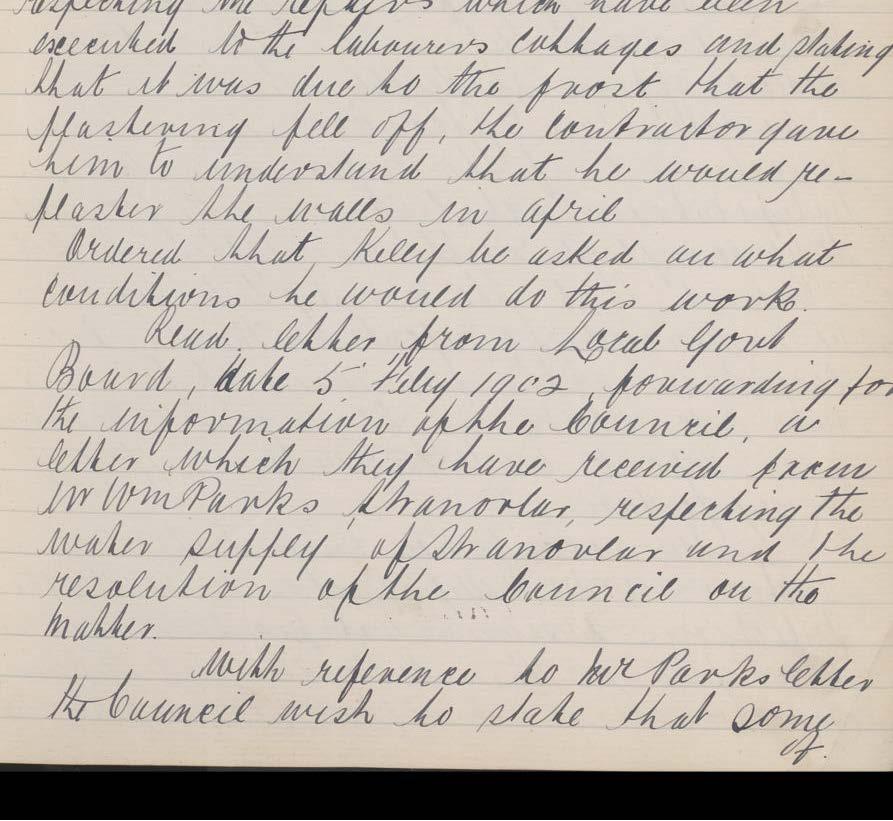 respecting the repairs which have been
executed to the labourers cottages and stating
that it was due to the frost that the
plastering fell off, the contractor gave
him to understand that he would re-
plaster the walls in april
Ordered that Kelly be asked on what
conditions he would do this work.
Read. letter from Local Govt
Board, date 5 Feby 1902, forwarding for
the information of the Council, a
letter which they have received from
Mr Wm Parks, Stranorlar, respecting the
water supply of Stranorlar and the
resolution of the Council on the
matter.
With reference to Mr Parks letter
the Council wish to state that some
of.